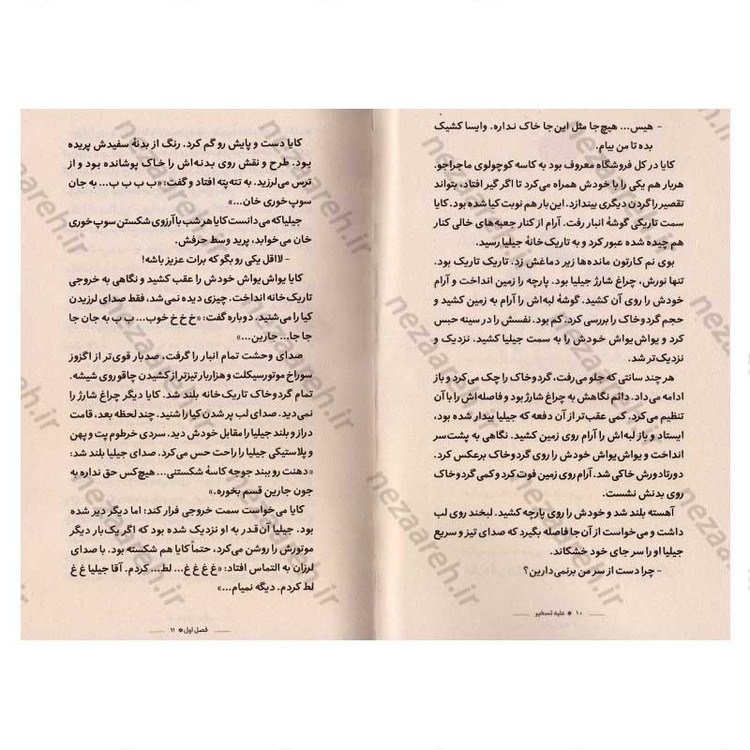 - هیس... هیچ‌جا مثل این‌جا خاک نداره. وایسا کشیک
بده تا من بیام.
کایا در کل فروشگاه معروف بود به کاسه کوچولوی ماجراجو.
هربار هم یکی را با خودش همراه می‌کرد تا اگر گیر افتاد، بتواند
تقصیر را گردن دیگری بیندازد. این بار هم نوبت کیا شده بود. کایا
سمت تاریکی گوشهٔ انبار رفت. آرام از کنار جعبه‌های خالی کنار
هم چیده شده عبور کرد و به تاریک خانهٔ جیلیا رسید.
بوی نم کارتون مانده‌ها زیر دماغش زد. تاریک تاریک بود.
تنها نورش، چراغ شارژ جیلیا بود. پارچه را زمین انداخت و آرام
خودش را روی آن کشید. گوشهٔ لبه‌اش را آرام به زمین کشید و
حجم گردوخاک را بررسی کرد. کم بود. نفسش را در سینه حبس
کرد و یواش یواش خودش را به سمت جیلیا کشید. نزدیک و
نزدیک‌تر شد.
هر چند سانتی که جلو می‌رفت، گردوخاک را چک می‌کرد و باز
ادامه می‌داد. دائم نگاهش به چراغ شارژ بود و فاصله‌اش را با آن
تنظیم می‌کرد. کمی عقب‌تر از آن دفعه که جیلیا بیدار شده بود،
ایستاد و باز لبه‌اش را آرام روی زمین کشید. نگاهی به پشت‌سر
انداخت و یواش یواش خودش را روی گردوخاک برعکس کرد.
دورتادورش خاکی شد. آرام روی زمین فوت کرد و کمی گردوخاک
روی بدنش نشست.
آهسته بلند شد و خودش را روی پارچه کشید. لبخند روی لب
داشت و می‌خواست از آن‌جا فاصله بگیرد که صدای تیز و سریع
جیلیا او را سر جای خود خشکاند.
- چرا دست از سر من برنمی‌دارین؟
۱۰ * علیه تسخیر
کایا دست و پایش رو گم کرد. رنگ از بدنهٔ سفیدش پریده
بود. طرح و نقش روی بدنه‌اش را خاک پوشانده بود و از
ترس می‌لرزید. به تته‌پته افتاد و گفت: «ب ب ب ب... به جان
سوپ‌خوری خان...»
جیلیا که می‌دانست کایا هر شب با آرزوی شکستن سوپ‌خوری
خان می‌خوابد، پرید وسط حرفش.
- لااقل یکی رو بگو که برات عزیز باشه!
کایا یواش یواش خودش را عقب کشید و نگاهی به خروجی
تاریک خانه انداخت. چیزی دیده نمی‌شد، فقط صدای لرزیدن
کیا را می‌شنید. دوباره گفت: «خ خ خ خوب... ب ب به جان جا
جا جا... جارین...»
صدای وحشت تمام انبار را گرفت، صدبار قوی‌تر از اگزوز
سوراخ موتورسیکلت و هزاربار تیزتر از کشیدن چاقو روی شیشه.
تمام گردوخاک تاریک خانه بلند شد. کایا دیگر چراغ شارژ را
نمی‌دید. صدای لب پر شدن کیا را شنید. چند لحظه بعد، قامت
دراز و بلند جیلیا را مقابل خودش دید. سردی خرطوم پت و پهن
و پلاستیکی جیلیا را راحت حس می‌کرد. صدای جیلیا بلند شد:
«دهنت رو ببند جوجه کاسهٔ شکستنی... هیچ‌کس حق نداره به
جون جارین قسم بخوره.»
کایا می‌خواست سمت خروجی فرار کند؛ اما دیگر دیر شده
بود. جیلیا آن‌قدر به او نزدیک شده بود که اگر یک‌بار دیگر
موتورش را روشن می‌کرد، حتماً کایا هم شکسته بود. با صدای
لرزان به التماس افتاد: «غ غ غ غ... لط... کردم. آقا جیلیا غ غ
لط کردم. دیگه نمیام...»
فصل اول * ۱۱
nezaareh.ir